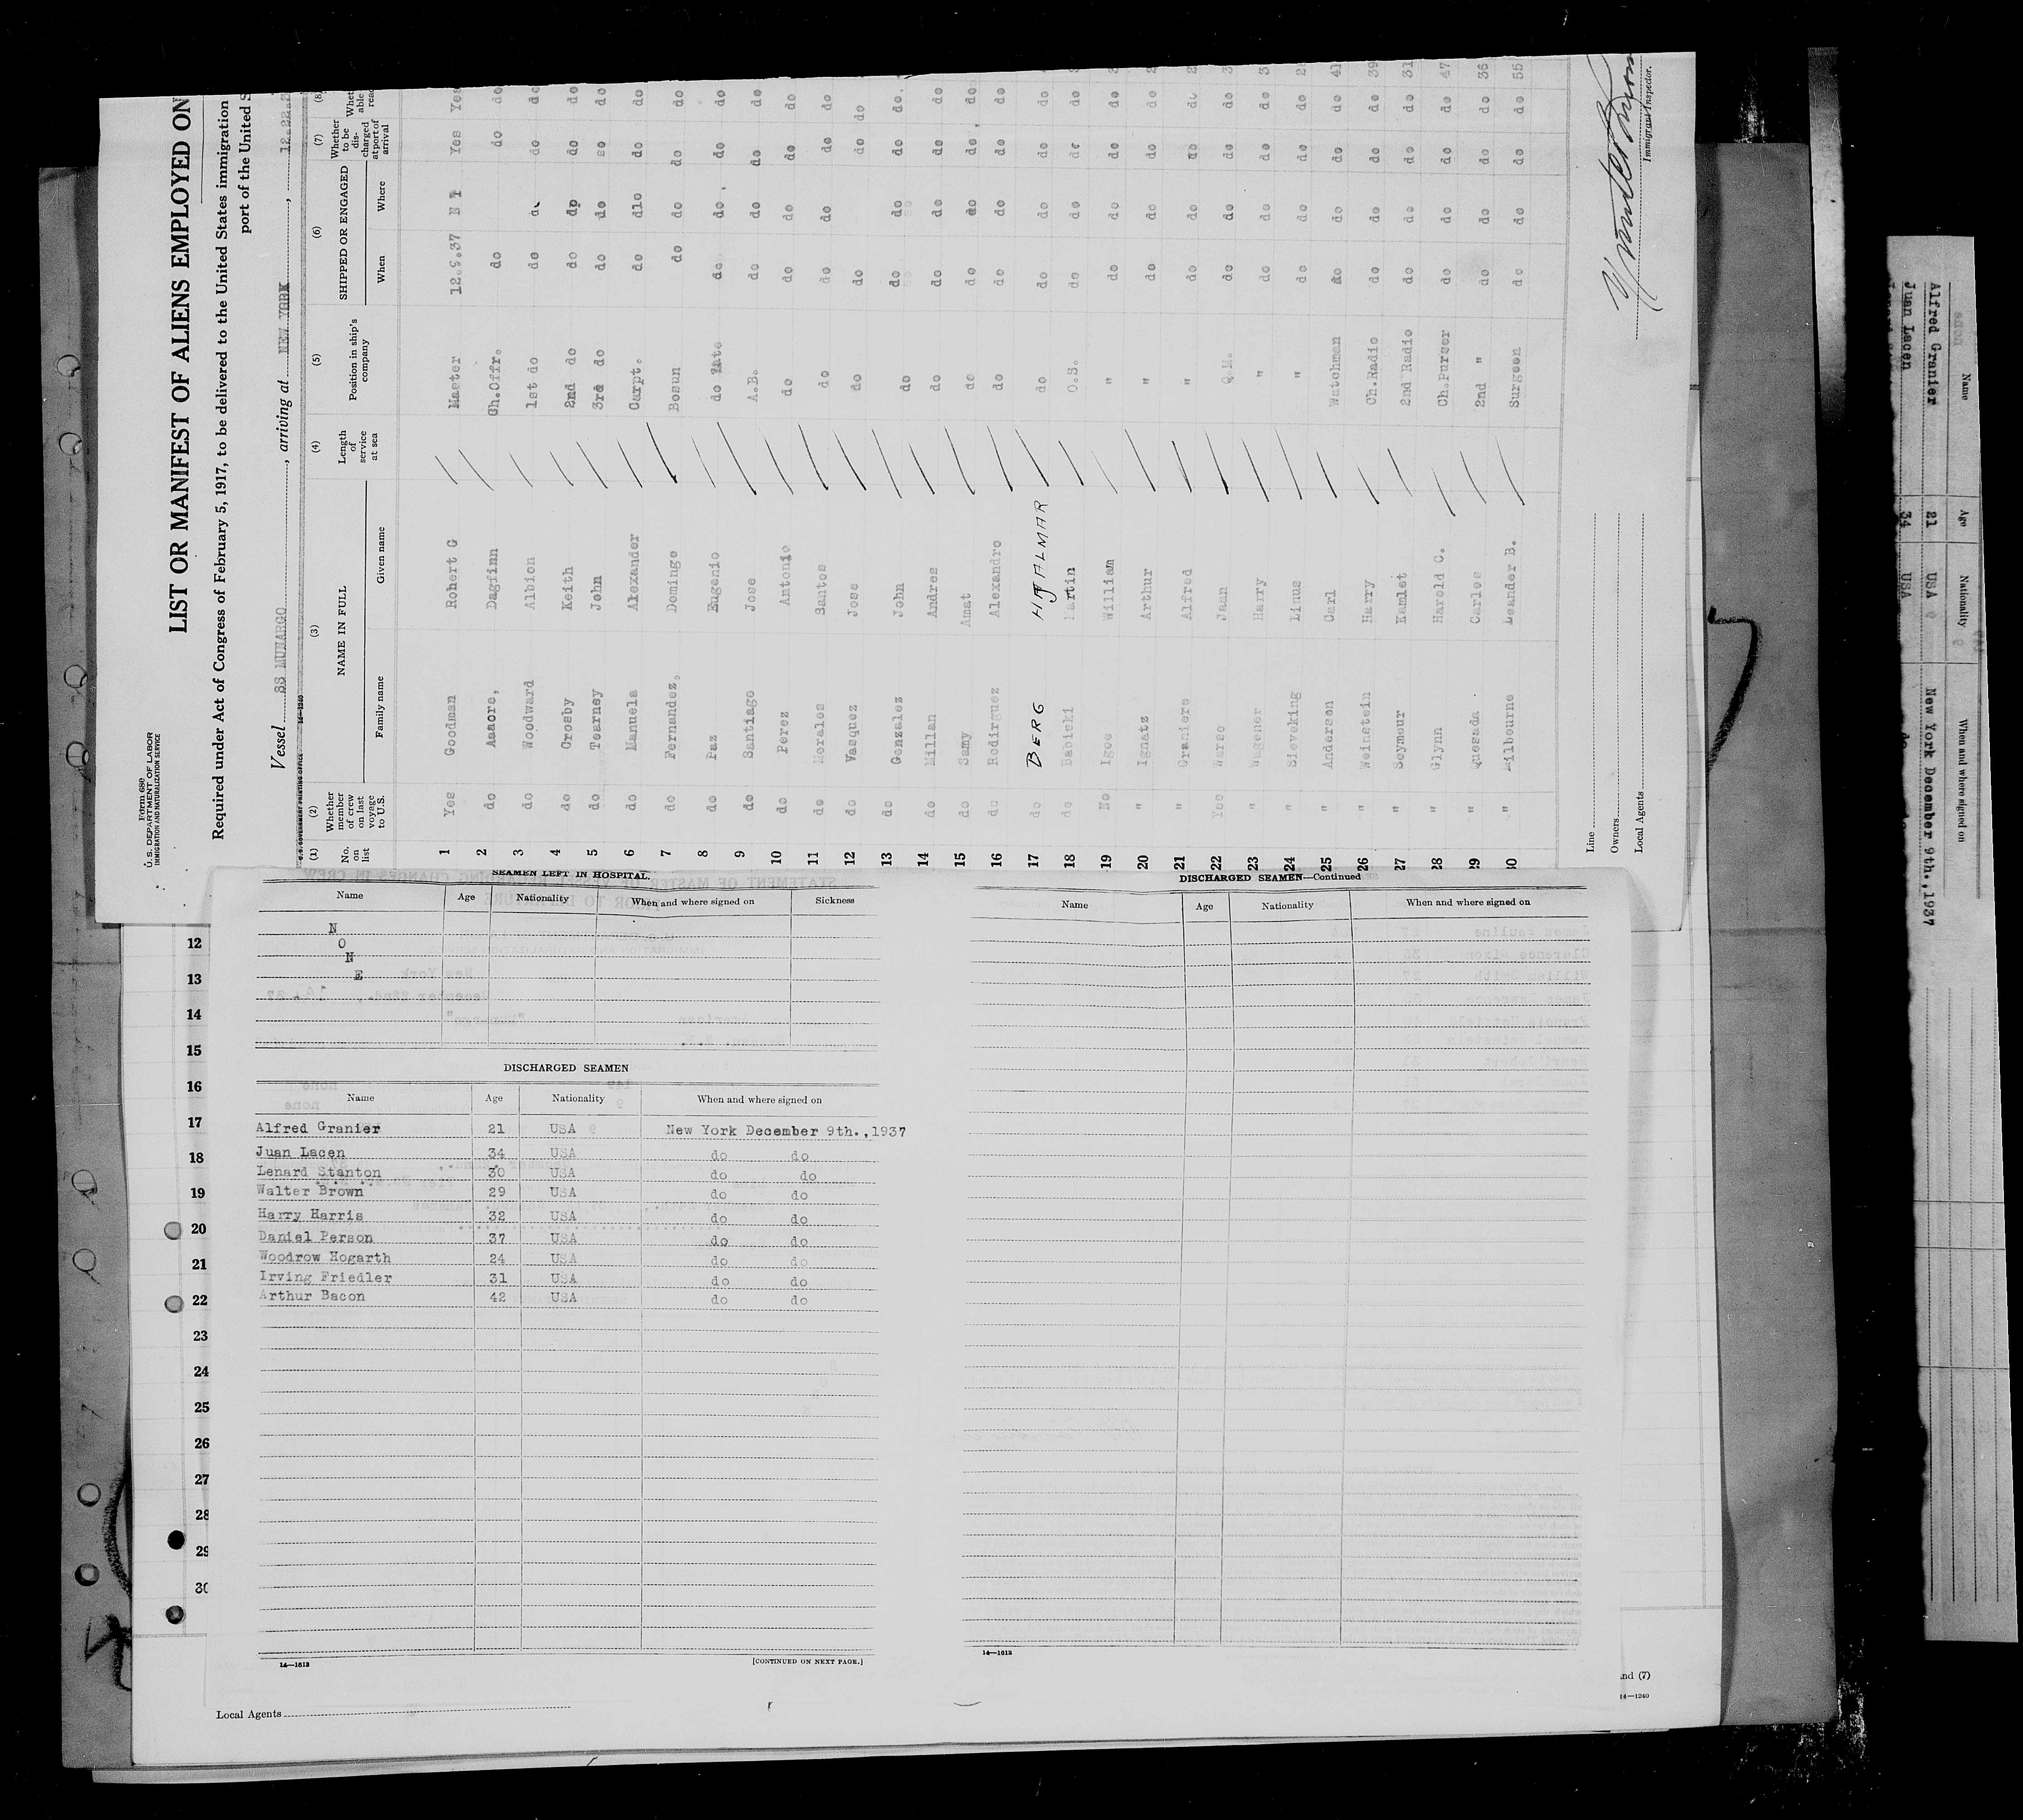 Form 680
U. S. DEPARTMENT OF LABOR
IMMIGRATION AND NATURALIZATION SERVICE
LIST OR MANIFEST OF ALIENS EMPLOYED ON
Required under Act of Congress of February 5, 1917, to be delivered to the United States immigration
port of the United S
Vessel SS MUNARGO, arriving at NEW YORK, 12.22.3
14—1240
(1) (2) (3) (4) (5) (6) (7) (8)
No. on list
Whether member of crew on last voyage to U.S.
NAME IN FULL
Family name Given name
Length of service at sea
Position in ship's company
SHIPPED OR ENGAGED
When Where
Whether to be discharged at port of arrival
1 Yes Goodman Robert G Master 12.9.37 N Y Yes Yes
2 do Aaaore, Dagfinn Ch.Offr. do do do
3 do Woodward Albion 1st do do do do do
4 do Crosby Keith 2nd do do do do do
5 do Tearney John 3rd do do do so do
6 do Manuela Alexander Carpt. do do do do
7 do Fernandez, Domingo Bosun do do do do
8 do Paz Eugenio do Mate do do do do 
9 do Santiago Jose A.B. do do do do
10 do Perez Antonio do do do do do
11 do Morales Santos do do do do do
12 do Vasquez Jose do do do do
13 do Gonzalez John do do do do do.
14 do Millan Andres do do do do do
15 do Samy Amat do do do do do
16 do Rodirguez Alexandro do do do do do
17 do BERG HJALMAR do do do do do
18 do Babiski Martin O.S. do do do do
19 No Igoe William " do do do do
20 " Ignatz Arthur " do do do do
21 " Graniere Alfred " do do do do
22 Yes Warso Jaan Q.M. do do do do
23 " Wagener Harry " do do do do
24 " Sieveking Linus " do do do do
25 " Anderson Carl Watchman do do do do 41
26 " Weinstein Harry Ch.Radio do do do do 39
27 " Seymour Kamlet 2nd Radio do do do do 31
28 " Glynn Harold C. Ch.Purser do do do do 47
29 " Quesada Carlos 2nd " do do do do 35
30 " Milbourne Leander B. Surgeon do do do do 55
Line
Owners
Local Agents
Immigrant Inspector.
SEAMEN LEFT IN HOSPITAL.
Name Age Nationality When and where signed on Sickness
N
O
N
E
DISCHARGED SEAMEN
Name Age Nationality When and where signed on
Alfred Granier 21 USA New York December 9th.,1937
Juan Lacen 34 USA do do
Lenard Stanton 30 USA do do
Walter Brown 29 USA do do
Harry Harris 32 USA do do
Daniel Person 37 USA do do
Woodrow Hogarth 24 USA do do
Irving Friedler 31 USA do do
Arthur Bacon 42 USA do do
14—1613
[CONTINUED ON NEXT PAGE.]
DISCHARGED SEAMEN—Continued
Name Age Nationality When and where signed on
14—1613
12
13
14
15
16
17
18
19
20
21
22
23
24
25
26
27
28
29
30
Local Agents
nd (7)
14—1240
Name Age Nationality When and where signed on
Alfred Granier 21 USA New York December 9th.,1937
Juan Lacen 34 USA